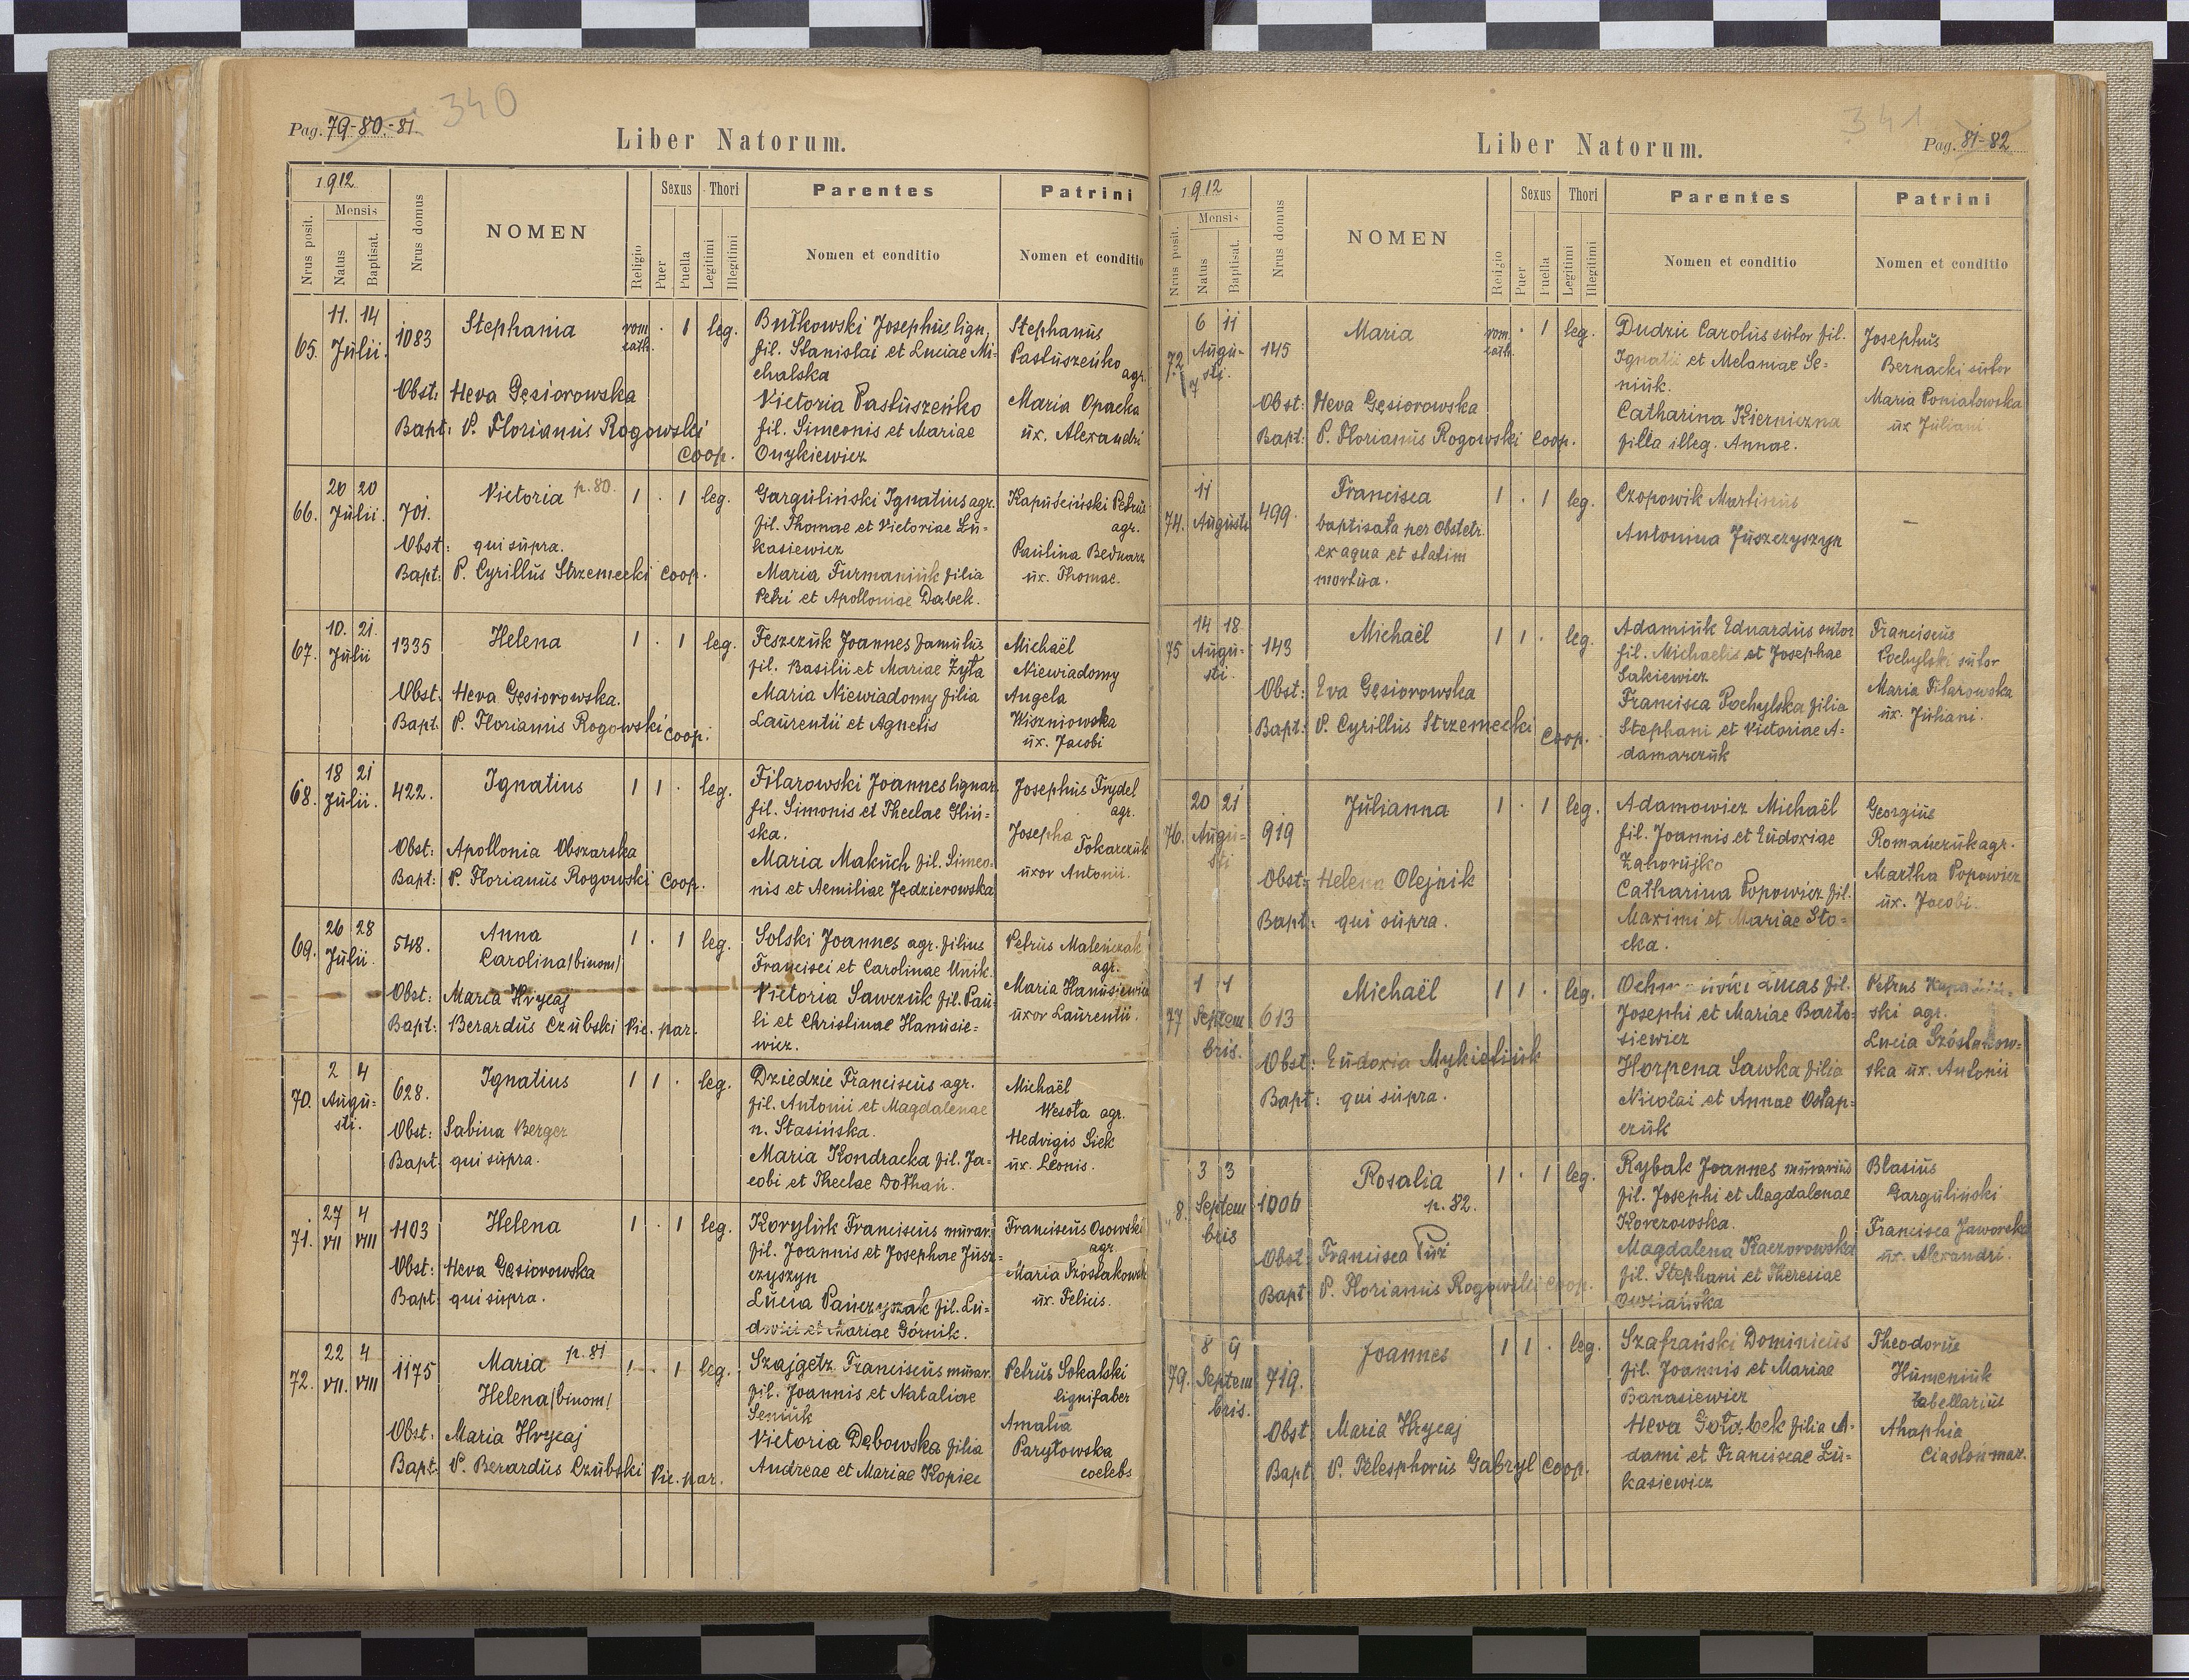 Pag. 79-80.-81.
340
Liber Natorum.
1912
Nrus posit.
Mensis
Natus
Baptisat.
Nrus domus
NOMEN
Religio
Sexus
Puer
Puella
Thori
Legitimi
Illegitimi
Parentes
Nomen et conditio
Patrini
Nomen et conditio
65.
11. 14
Julii.
1083
Stephania
rom.
cath.
. 1 leg.
Butkowski Josephus lign.
fil. Stanislai et Luciae Mi-
chalska
Victoria Pastuszeńko
fil. Simeonis et Mariae
Onykiewicz
Stephanus
Pastuszeńko
agr.
Maria Opacka
ux. Alexandri
Obst: Heva Gęsiorowska
Bapt: P. Florianus Rogowski
Coop.
66.
20 20
Julii.
701.
Victoria p. 80.
1 . 1 leg.
Garguliński Ignatius agr.
fil. Thomae et Victoriae Łu-
kasiewicz
Maria Furmaniuk filia
Petri et Apolloniae Dąbek.
Kapuściński Petrus
agr.
Paulina Bednarz
ux. Thomae.
Obst: qui supra.
Bapt: P. Cyrillus Strzemecki Coop.
67.
10. 21.
Julii
1335
Helena
1 . 1 leg.
Feszczuk Joannes famulus
fil. Basilii et Mariae Zyła
Maria Niewiadomy filia
Laurentii et Agnetis
Michaël
Niewiadomy
Angela
Wiszniowska
ux. Jacobi
Obst: Heva Gęsiorowska.
Bapt: P. Florianus Rogowski Coop.
68.
18 21
Julii.
422.
Ignatius
1 1 . leg.
Filarowski Joannes lignar.
fil. Simonis et Theclae Hliń-
ska.
Maria Makuch fil. Simeo-
nis et Aemiliae Jędzierowska
Josephus Frydel
agr.
Josepha Tokarczuk
uxor Antonii.
Obst: Apollonia Obszarska
Bapt: P. Florianus Rogowski Coop.
69.
26 28
Julii.
548.
Anna
Carolina /binom/
1 . 1 leg.
Solski Joannes agr. filius
Francisci et Carolinae Unik.
Victoria Sawczuk fil. Pau-
li et Christinae Hanusie-
wicz.
Petrus Maleńczak
agr.
Maria Hanusiewicz
uxor Laurentii.
Obst: Maria Hrycaj
Bapt: Berardus Czubski Vic. par.
70.
2 4
Augu-
sti.
628.
Ignatius
1 1 . leg.
Dziedzic Franciscus agr.
fil. Antonii et Magdalenae
n. Stasińska.
Maria Kondracka fil. Ja-
cobi et Theclae Dołhań.
Michaël
Wesoła agr.
Hedvigis Siek
ux. Leonis.
Obst: Sabina Berger
Bapt: qui supra.
71.
27 4
VII VIII
1103
Helena
1 . 1 leg.
Koryluk Franciscus murar.
fil. Joannis et Josephae Jusz-
czyszyn
Lucia Pańczyszak fil. Lu-
dovici et Mariae Górnik.
Franciscus Osowski
agr.
Maria Szósłakowsk
ux. Felicis.
Obst: Heva Gęsiorowska
Bapt: qui supra.
72.
22 4
VII. VIII
1175
Maria p. 81
Helena /binom/
1 . 1 leg.
Szajgetz Franciscus murar.
fil. Joannis et Nataliae
Seniuk
Victoria Dębowska filia
Andreae et Mariae Kopiec
Petrus Sokalski
lignifaber
Amalia
Parytowska
coelebs
Obst. Maria Hrycaj
Bapt. P. Berardus Czubski Vic. par.
341
Pag. 81-82
Liber Natorum.
1912
Nrus posit.
Mensis
Natus
Baptisat.
Nrus domus
NOMEN
Religio
Sexus
Puer
Puella
Thori
Legitimi
Illegitimi
Parentes
Nomen et conditio
Patrini
Nomen et conditio
72
6 11
Augu-
sti.
145
Maria
rom.
cath.
. 1 leg.
Dudzic Carolus sutor fil.
Ignatii et Melaniae Se-
niuk.
Catharina Kierniczna
filia illeg. Annae.
Josephus
Bernacki sutor
Maria Poniatowska
ux Juliani
Obst: Heva Gęsiorowska
Bapt: P. Florianus Rogowski Coop.
74.
11
Augusti
499.
Francisca
baptisata per Obstetr.
ex aqua et statim
mortua.
1 . 1 leg.
Czopowik Martinus
Antonina Juszczyszyn
–
75
14 18
Augu-
sti.
143
Michaël
1 1 . leg.
Adamiuk Eduardus sutor
fil. Michaelis et Josephae
Sakiewicz
Francisca Pochylska filia
Stephani et Victoriae A-
damarczuk
Franciscus
Pochylski sutor
Maria Filarowska
ux. Juliani.
Obst: Eva Gęsiorowska
Bapt: P. Cyrillus Strzemecki Coop.
76.
20 21
Augu-
sti
919
Julianna
1 . 1 leg.
Adamowicz Michaël
fil. Joannis et Eudoxiae
Zahorujko
Catharina Popowicz fil.
Maximi et Mariae Sto-
cka.
Georgius
Romańczuk agr.
Martha Popowicz
ux. Jacobi.
Obst: Helena Olejnik
Bapt: qui supra.
77
1 1
Septem
bris.
613
Michaël
1 1 . leg.
Lucas fil.
Josephi et Mariae Barto-
siewicz
Horpena Sawka filia
Nicolai et Annae Ostap-
czuk
Petrus
ski agr.
Lucia Szósłakow-
ska ux. Antonii
Obst: Eudoxia Mykieliuk
Bapt: qui supra.
8.
3 3
Septem
bris
1006
Rosalia
p. 82.
1 . 1 leg.
Rybak Joannes murarius
fil. Josephi et Magdalenae
Korczowska.
Magdalena Kaczorowska
fil. Stephani et Theresiae
Owsiańska
Blasius
Garguliński
Francisca Jaworska
ux. Alexandri.
Obst: Francisca Puź
Bapt: P. Florianus Rogowski Coop.
79.
8 9
Septem
bris.
719.
Joannes
1 1 . leg.
Szafrański Dominicus
fil. Joannis et Mariae
Banasiewicz
Heva Gołąbek filia A-
dami et Franciscae Łu-
kasiewicz
Theodorus
Humeniuk
tabellarius
Ahaphia
Ciastoń mar.
Obst: Maria Hrycaj
Bapt: P. Telesphorus Gabryl Coop.